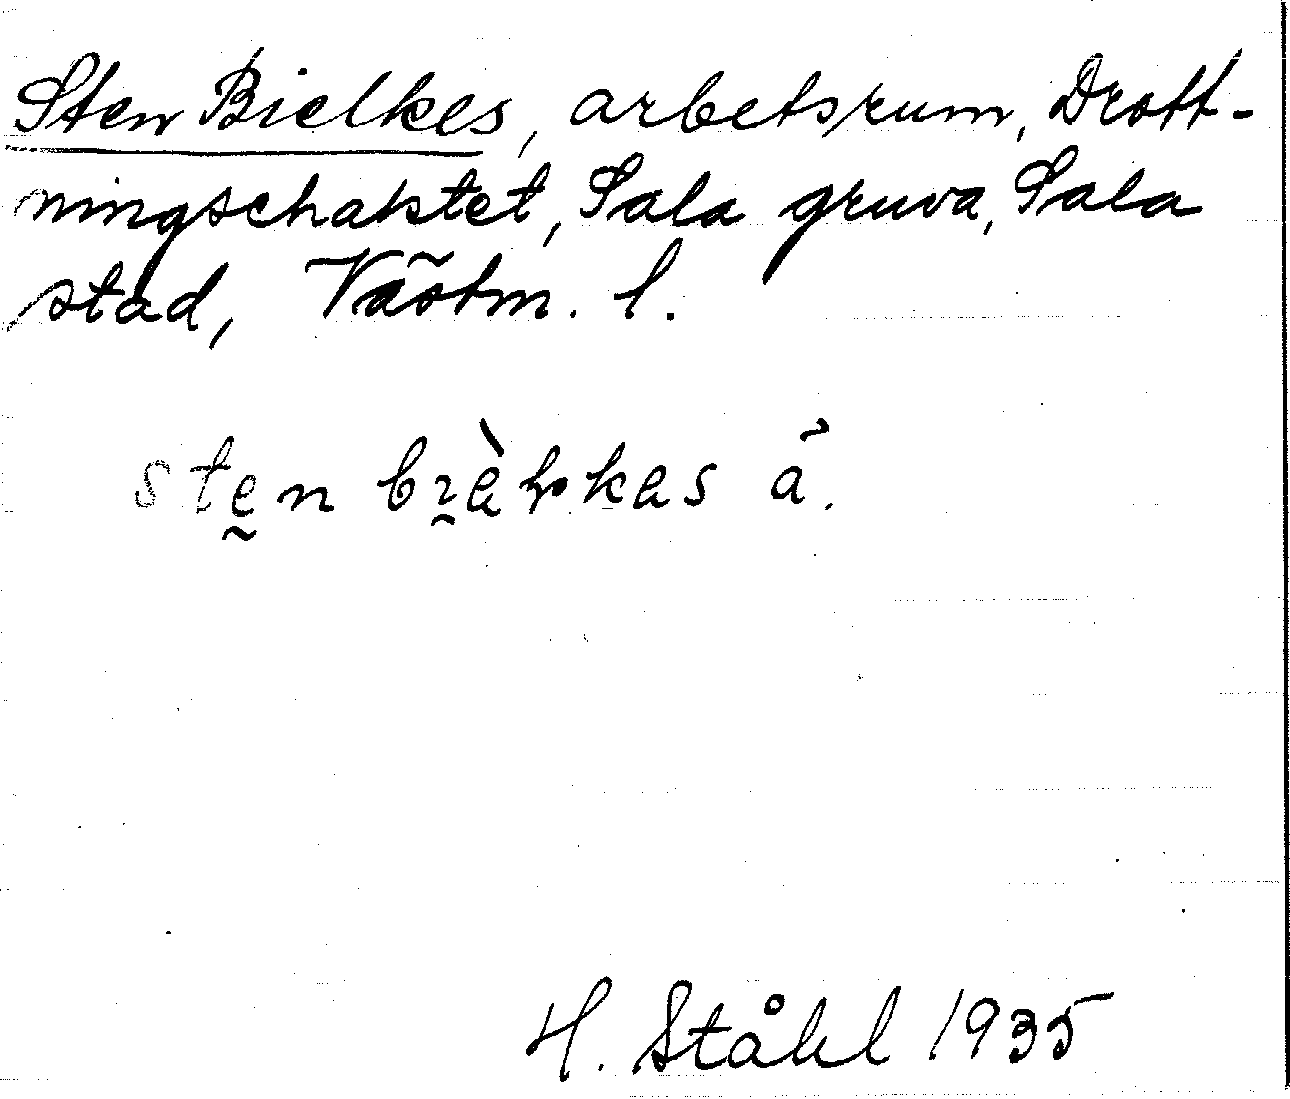 Sten Bielkes, arbetsrum, Drott-
ningschaktet, Sala gruva, Sala
stad, Västm. l.
sten
H. Ståhl 1935